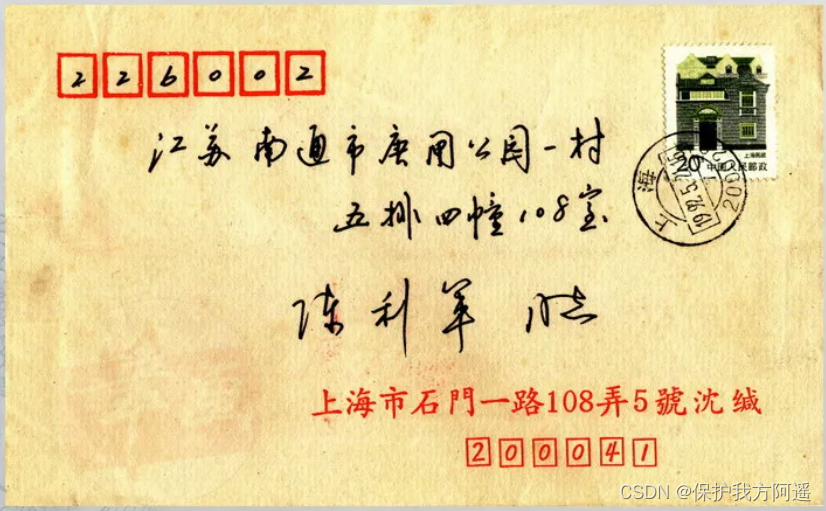 226002
江苏南通市唐闸公园一村
五排四幢108室
陈利军 启
上海民居
20 中国人民邮政
上海
1992.5.
上海市石門一路108弄5號沈缄
200041
CSDN @保护我方阿遥